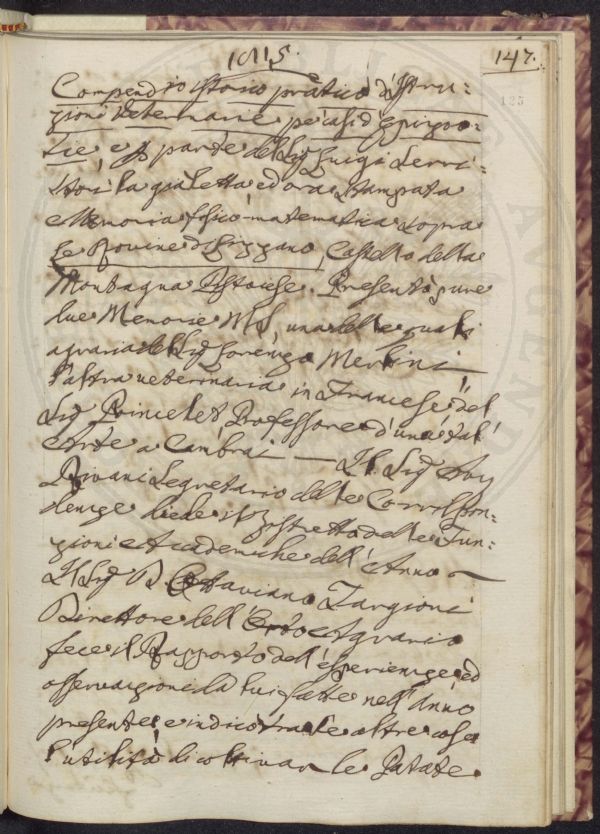 1815.
147.
125
Compendio istorico pratico d'Istru:
zioni Veterinarie pe' casi d'epizoo:
tie, e p parte del Sig Luigi Serri:
stori la già letta ed ora stampata
Memoria fisico-matematica sopra
le Rovine di Lizzano, Castello della
Montagna Pistoiese. Presentò pure
due Memorie MS, una delle quali
agraria del Sig Lorenzo Merlini
l'altra veterinaria in Francese del
Sig Poincelet Professore d'una tal'
Arte a Cambrai — Il Sig Avv
Rivani Segretario delle Corrispon:
denze diede il Ristretto delle Fun:
zioni Accademiche dell'Anno —
Il Sig D Ottaviano Targioni
Direttore dell'Orto Agrario
fece il Rapporto dell'esperienze, ed
osservazioni da lui fatte nell'Anno
presente, e indicò tra le altre cose
l'utilità di coltivar le Patate